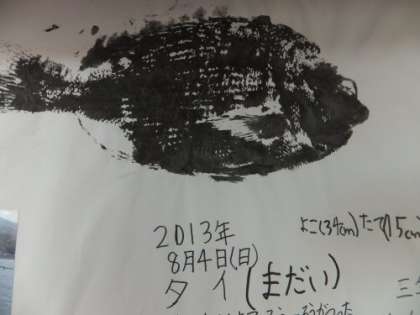 2013年
よこ(34cm)たて15cm
8月4日(日)
タイ(まだい)
三